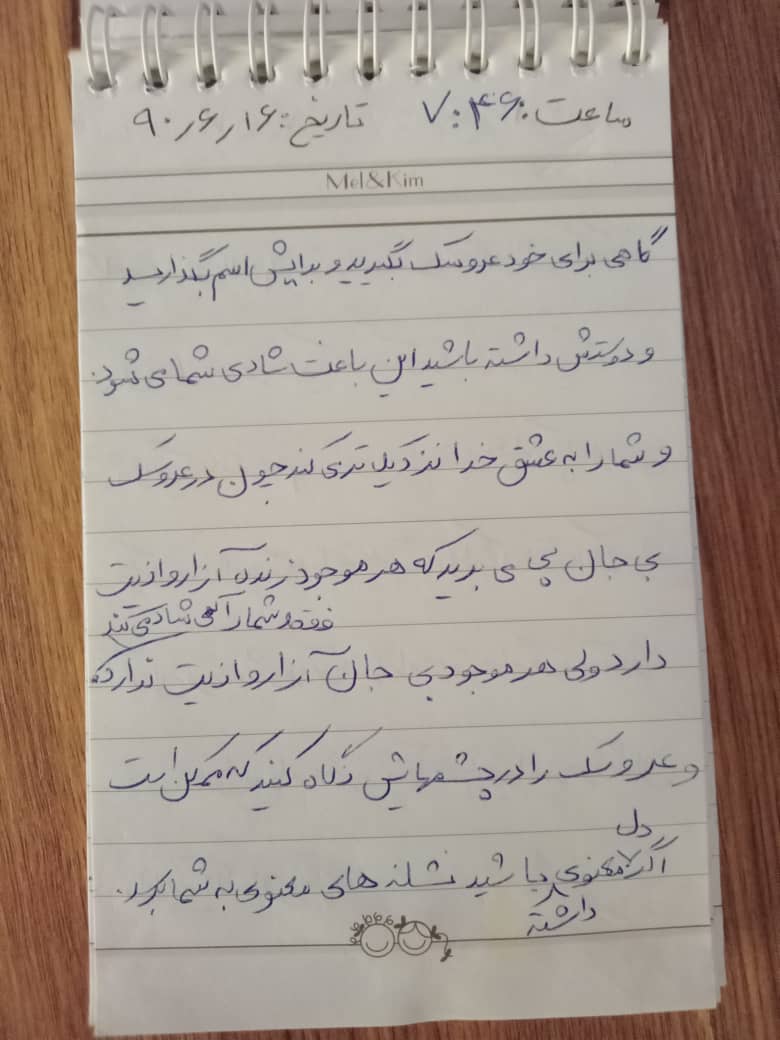 ساعت: ۷:۴۶ تاریخ: ۹۰٫۶٫۱۶
Mel&Kim
گاهی برای خود عروسک بگیرید و برایش اسم بگذارید
و دوستش داشته باشید این باعث شادی شما می شود.
و شما را به عشق خدا نزدیک تر می کند چون در عروسک
بی جان پی می برید که هر موجود زنده آزار و اذیت
فقط شما را کمی شاد می کند
دارد ولی هر موجود بی جان آزار و اذیت ندارد که
و عروسک را در چشمهایش نگاه کنید که ممکن است
دل
اگر معنوی باشید نشانه های معنوی به شما بگوید.
داشته